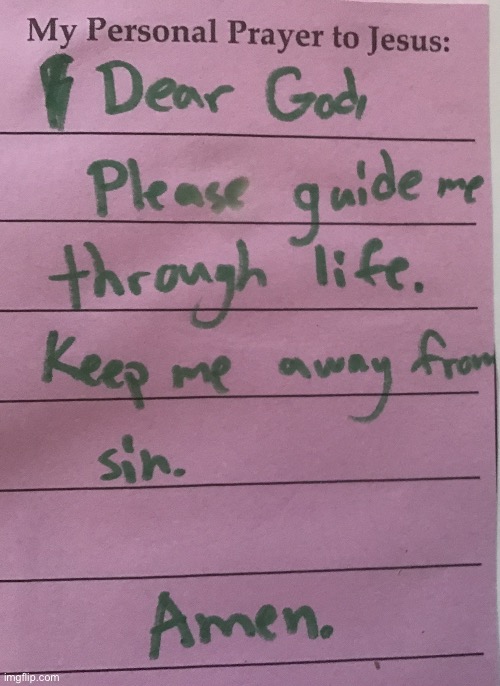 My Personal Prayer to Jesus:
Dear God,
Please guide me
through life.
Keep me away from
sin.
Amen.
imgflip.com